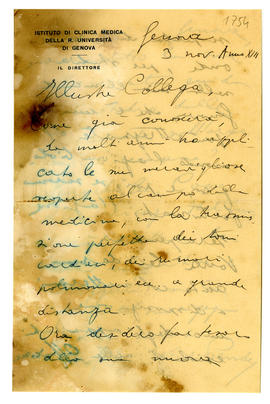 1754
ISTITUTO DI CLINICA MEDICA
DELLA R. UNIVERSITÀ
DI GENOVA
IL DIRETTORE
Genova
3 nov. Anno XII
Illustre Collega,
Come già conoscerà,
da molti anni ho appli
cato le sue meravigliose
scoperte al campo della
medicina, con la trasmis
sione perfetta dei toni
cardiaci, dei rumori
polmonari ecc. a grande
distanza.
Ora desidero far
una nuova